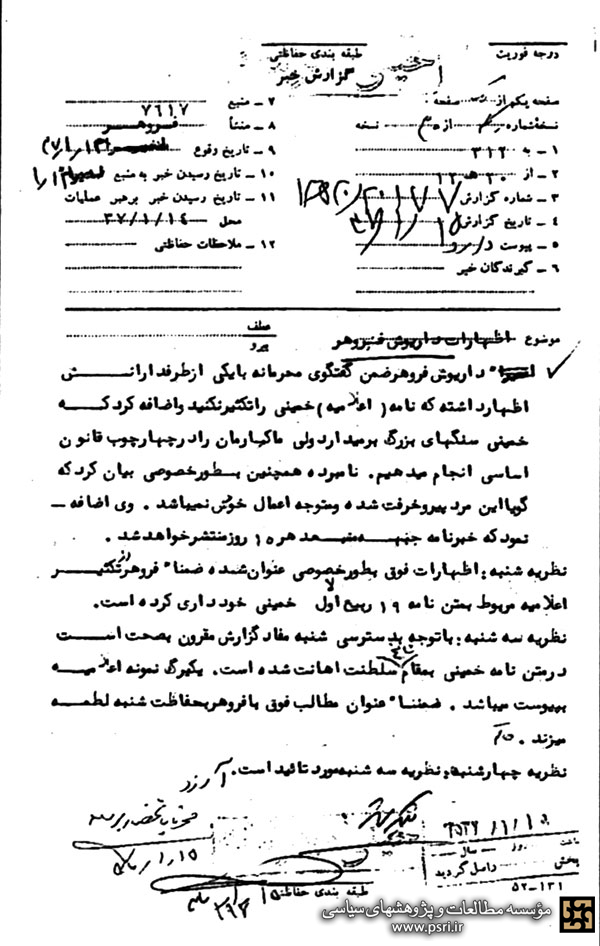 درجه فوریت
طبقه بندی حفاظتی
گزارش خبر
صفحه یکم از صفحه
نسخه شماره از نسخه
۱ ـ به ۳۱۲
۲ ـ از ۲۰ هـ ۱۲
۳ ـ شماره گزارش
۴ ـ تاریخ گزارش
۵ ـ پیوست دارد
۶ ـ گیرندگان خبر
۷ ـ منبع ۷۶۱۷
۸ ـ منشأ فروهر
۹ ـ تاریخ وقوع
۱۰ ـ تاریخ رسیدن خبر به منبع
۱۱ ـ تاریخ رسیدن خبر برهبر عملیات
محل ۳۷/۱/۱۴
۱۲ ـ ملاحظات حفاظتی
موضوع اظهارات داریوش فروهر
عطف
پیرو
داریوش فروهر ضمن گفتگوی محرمانه با یکی از طرفدارانش
اظهار داشته که نامه (اعلامیه) خمینی را تکثیر نکنید و اضافه کرد که
خمینی سنگهای بزرگ برمیدارد ولی ما کارمان را در چهار چوب قانون
اساسی انجام میدهیم. نامبرده همچنین بطور خصوصی بیان کرد که
گویا این مرد پیر و خرفت شده و متوجه اعمال خوش نمیباشد. وی اضافه ـ
نمود که خبرنامه جبهه هر ۱۵ روز منتشر خواهد شد.
نظریه شنبه: اظهارات فوق بطور خصوصی عنوان شده ضمنا" فروهر از تکثیر
اعلامیه مربوط بمتن نامه ۱۹ ربیع الاول خمینی خودداری کرده است.
نظریه سه شنبه: با توجه بدسترسی شنبه مفاد گزارش مقرون بصحت است
در متن نامه خمینی بمقام سلطنت اهانت شده است. یکبرگ نمونه اعلامیه
بپیوست میباشد. ضمنا" عنوان مطالب فوق با فروهر بحفاظت شنبه لطمه
میزند.
نظریه چهارشنبه: نظریه سه شنبه مورد تائید است.
ساعت روز سال
بخش واصل گردید
۵۲-۱۳۱
طبقه بندی حفاظتی
مؤسسه مطالعات و پژوهشهای سیاسی
www.psri.ir